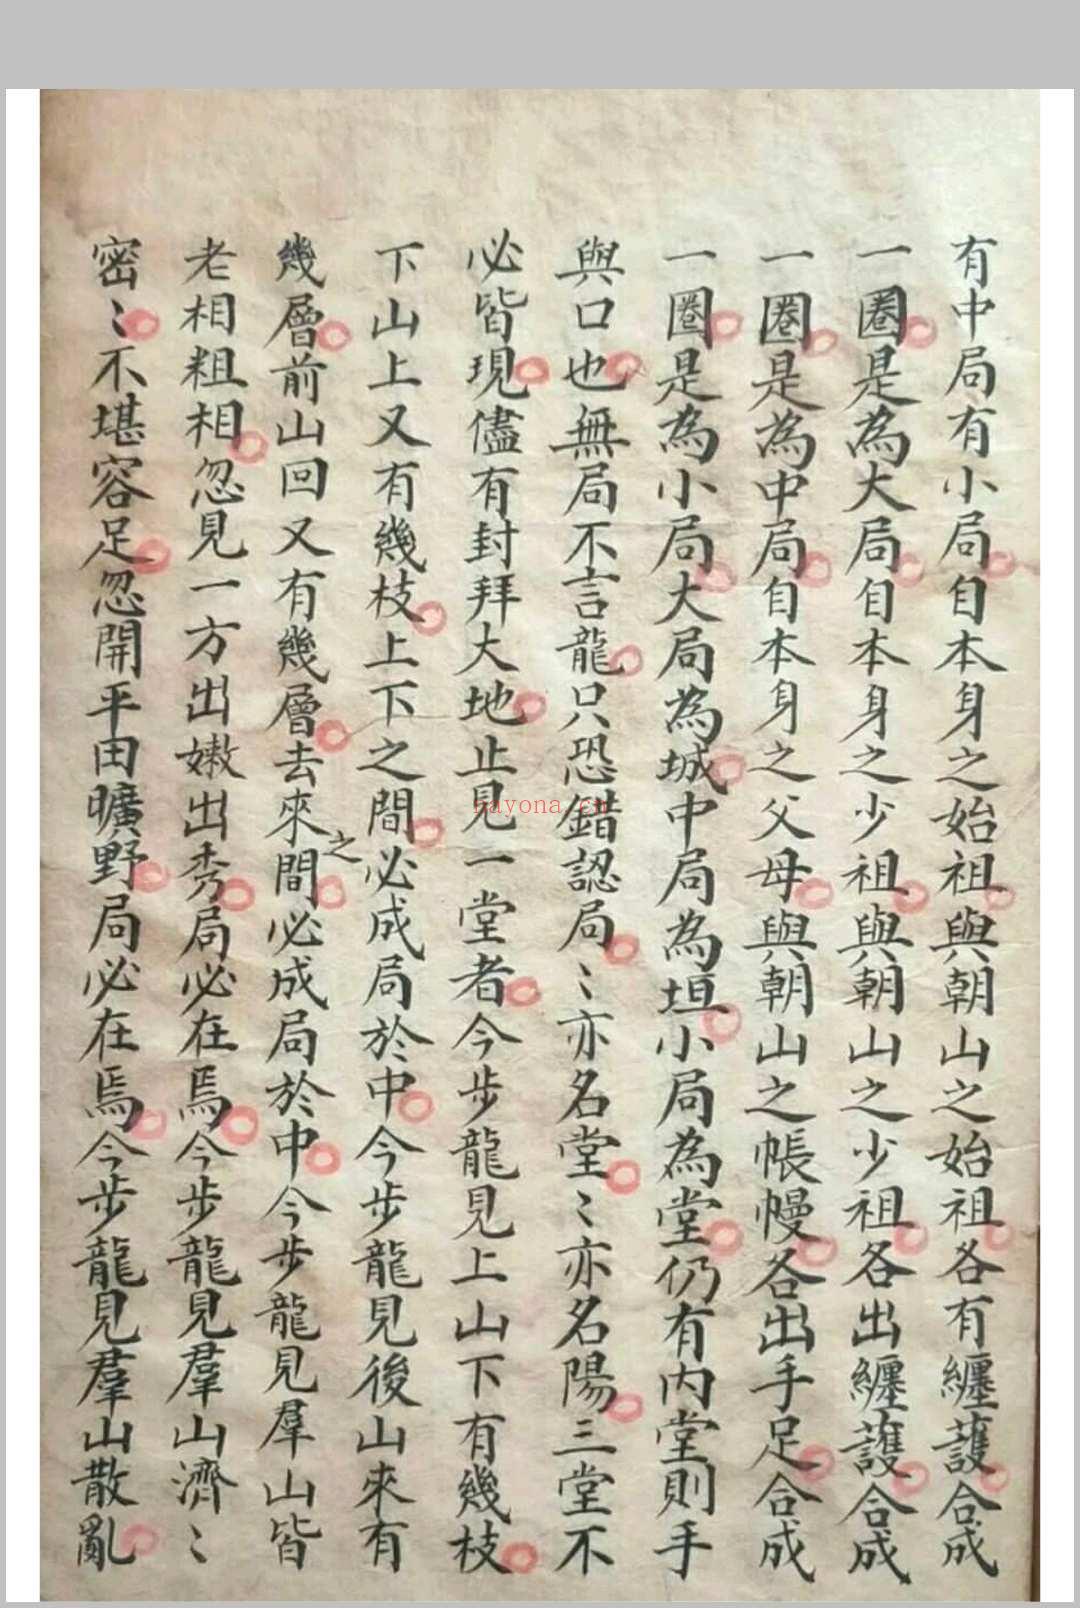 有中局有小局自本身之始祖與朝山之始祖各有纏護合成
一圈是為大局自本身之少祖與朝山之少祖各出纏護合成
一圈是為中局自本身之父母與朝山之帳幔各出手足合成
一圈是為小局大局為城中局為垣小局為堂仍有內堂則手
與口也無局不言龍只恐錯認局〻亦名堂〻亦名陽三堂不
必皆現儘有封拜大地止見一堂者今步龍見上山下有幾枝
下山上又有幾枝上下之間必成局於中今步龍見後山來有
幾層前山回又有幾層去來之間必成局於中今步龍見羣山皆
老相粗相忽見一方出嫩出秀局必在焉今步龍見羣山濟〻
密〻不堪容足忽開平田曠野局必在焉今步龍見羣山散亂
nayona.cn